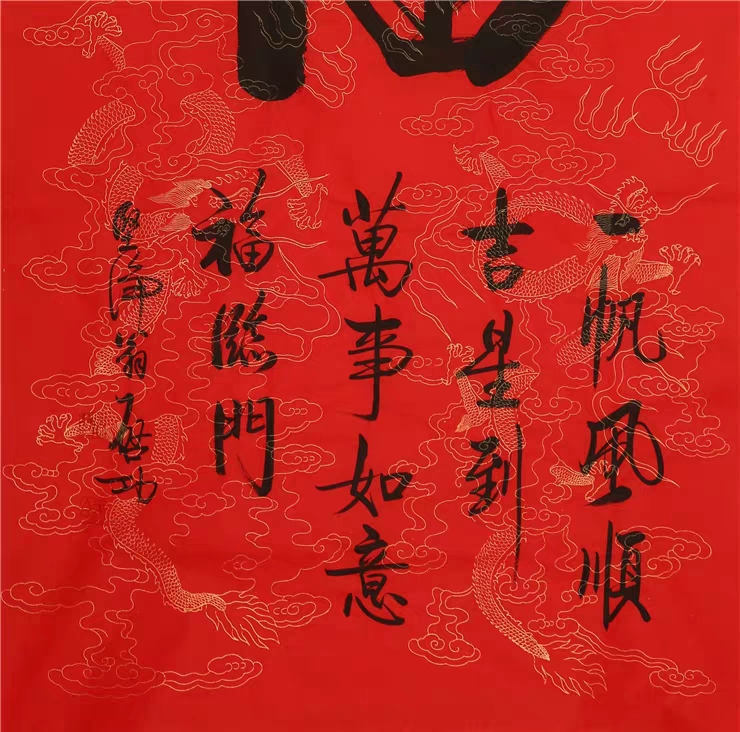 一帆風順
吉星到
萬事如意
福臨門
堅淨翁啓功